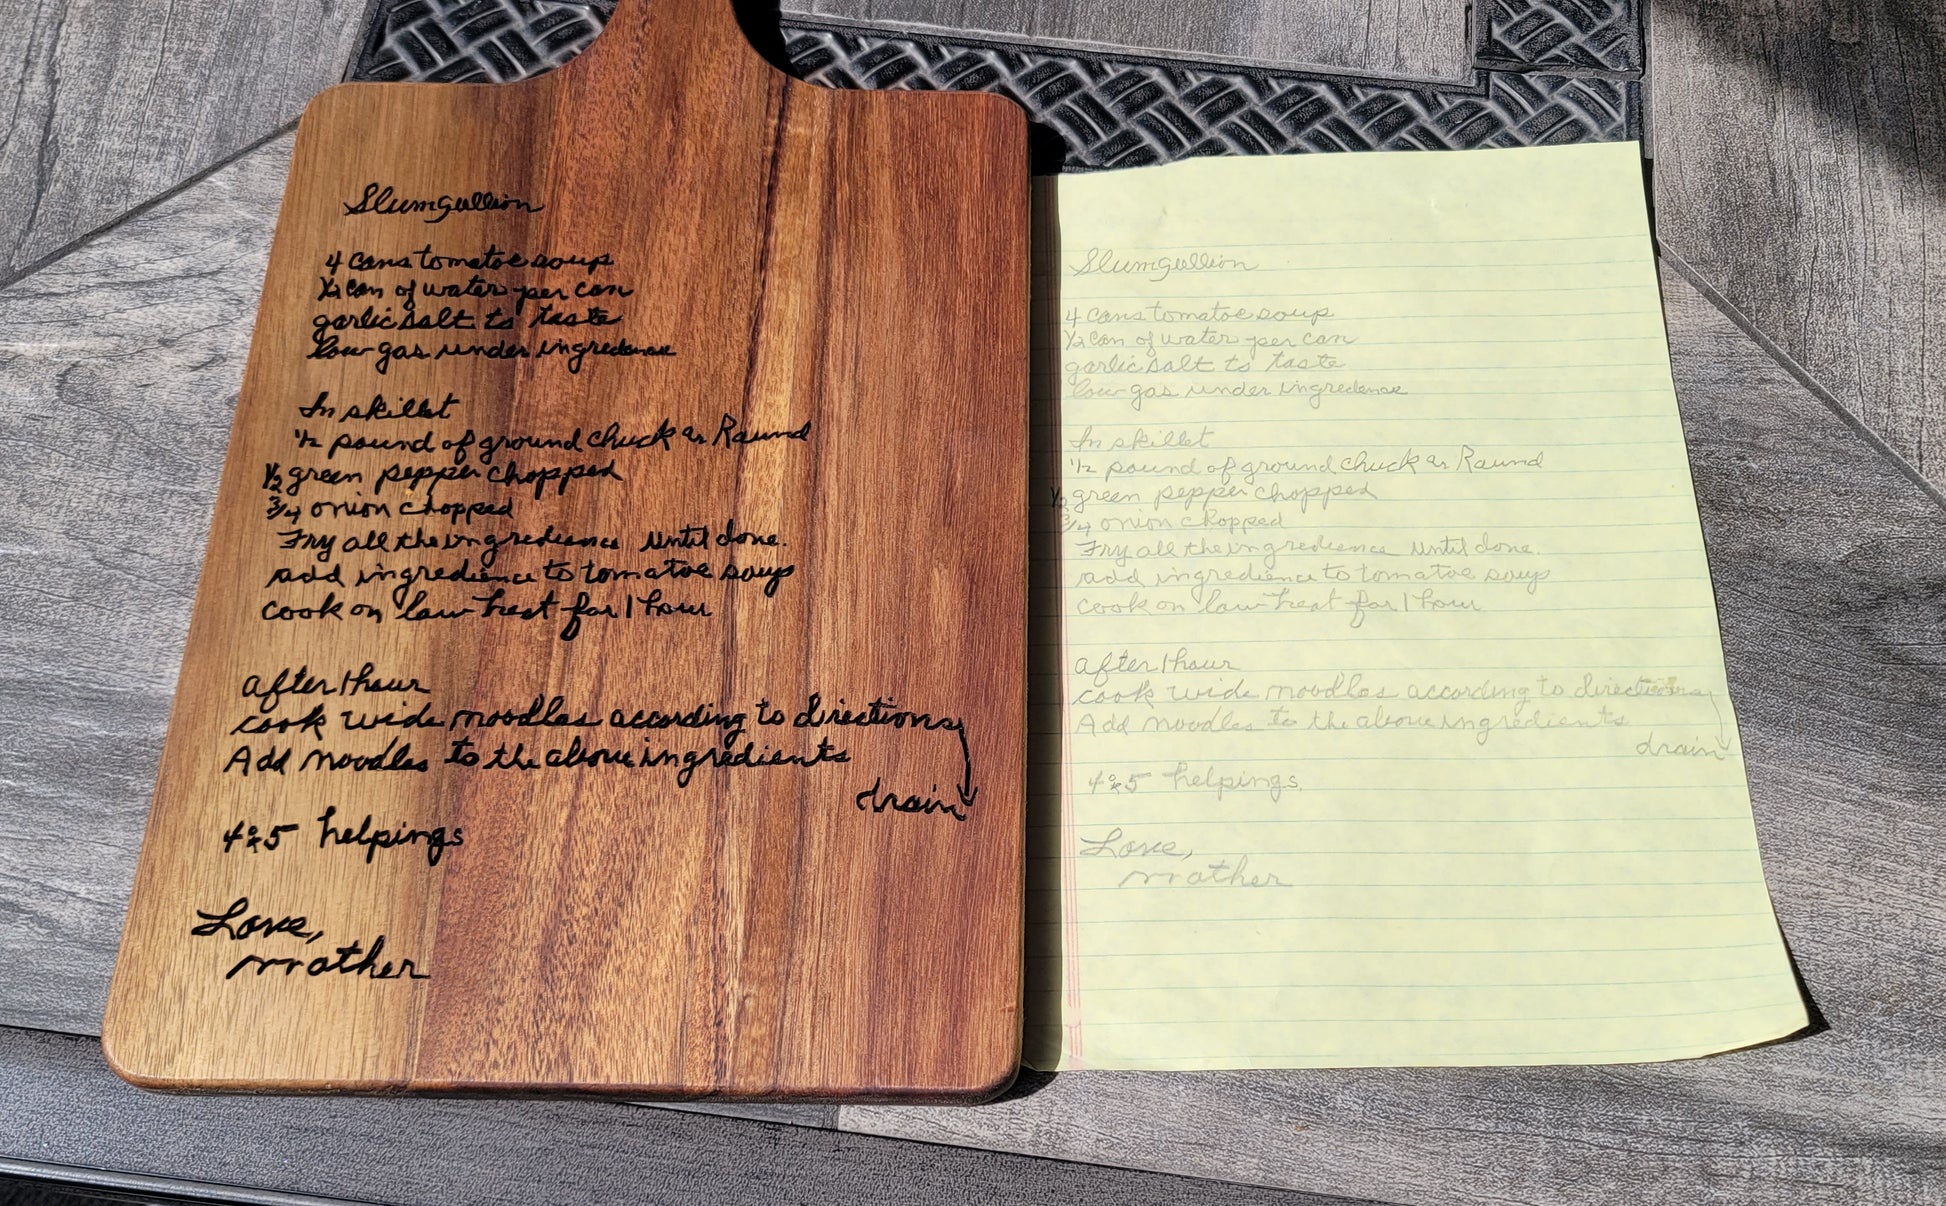 Slumgullion
4 cans tomatoe soup
1/2 can of water per can
garlic salt to taste
low gas under ingredense
In skillet
1/2 pound of ground chuck or Round
1/2 green pepper chopped
3/4 onion chopped
Fry all the ingredience until done.
add ingredience to tomatoe soup
cook on low heat for 1 hour
after 1 hour
cook wide noodles according to directions
Add noodles to the above ingredients
drain
4 or 5 helpings
Love,
mother
Slumgullion
4 cans tomatoe soup
1/2 can of water per can
garlic salt to taste
low gas under ingredense
In skillet
1/2 pound of ground chuck or Round
1/2 green pepper chopped
3/4 onion chopped
Fry all the ingredience until done.
add ingredience to tomatoe soup
cook on low heat for 1 hour
after 1 hour
cook wide noodles according to directions
Add noodles to the above ingredients
drain
4 or 5 helpings.
Love,
mother